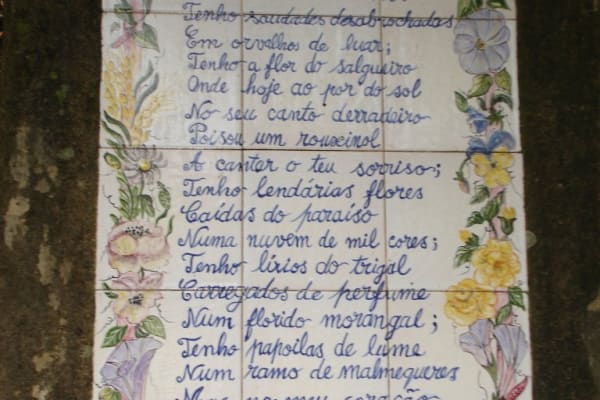 Tenho saudades desabrochadas
Em orvalhos de luar;
Tenho a flor do salgueiro
Onde hoje ao por do sol
No seu canto derradeiro
Poisou um rouxinol
A cantar o teu sorriso;
Tenho lendárias flores
Caídas do paraíso
Numa nuvem de mil cores;
Tenho lírios do trigal
Carregados de perfume
Num florido morangal;
Tenho papoilas de lume
Num ramo de malmequeres
Mas no meu coração